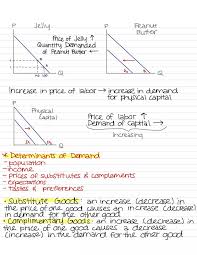 P Jelly
Price of Jelly ↑
Quantity Demanded
of Peanut Butter ←
Q
P Peanut
Butter
Q
Increase in price of labor → increase in demand
for physical capital
P Physical
Capital
Q
Price of labor ↑
Demand of Capital →
Increasing
* Determinants of Demand
- population
- income
- Prices of substitutes & complements
- expectations
- tastes & preferences
• Substitute Goods: an increase (decrease) in
the price of one good causes an increase (decrease)
in demand for the other good
• Complimentary Goods: an increase (decrease) in
the price of one good causes a decrease
(increase) in the demand for the other good